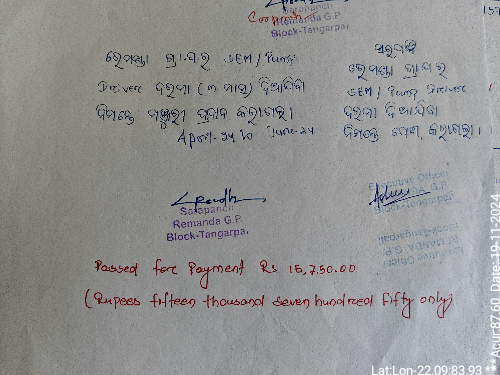 Sarapanch
Remanda G.P.
Block-Tangarpali
ରେମଣ୍ଡା ଗ୍ରା.ପ.ର SEM/Pump
Driver ଦରମା (୩ ମାସ) ଦିଆଯିବା
ନିମନ୍ତେ ମଞ୍ଜୁରୀ ପ୍ରଦାନ କରାଗଲା।
April-24 to June-24
ସରପଞ୍ଚ
ରେମଣ୍ଡା ଗ୍ରା.ପ.ର
SEM/Pump Driver
ଦରମା ଦିଆଯିବା
ନିମନ୍ତେ ପେଶ୍ କରାଗଲା।
Sarapanch
Remanda G.P.
Block-Tangarpali
Executive Officer
Remanda G.P.
Block-Tangarpali
Passed for Payment Rs 15,750.00
(Rupees fifteen thousand seven hundred fifty only)
Lat:Lon-22.09:83.93 **Acur:87.60 Date:19-11-2024